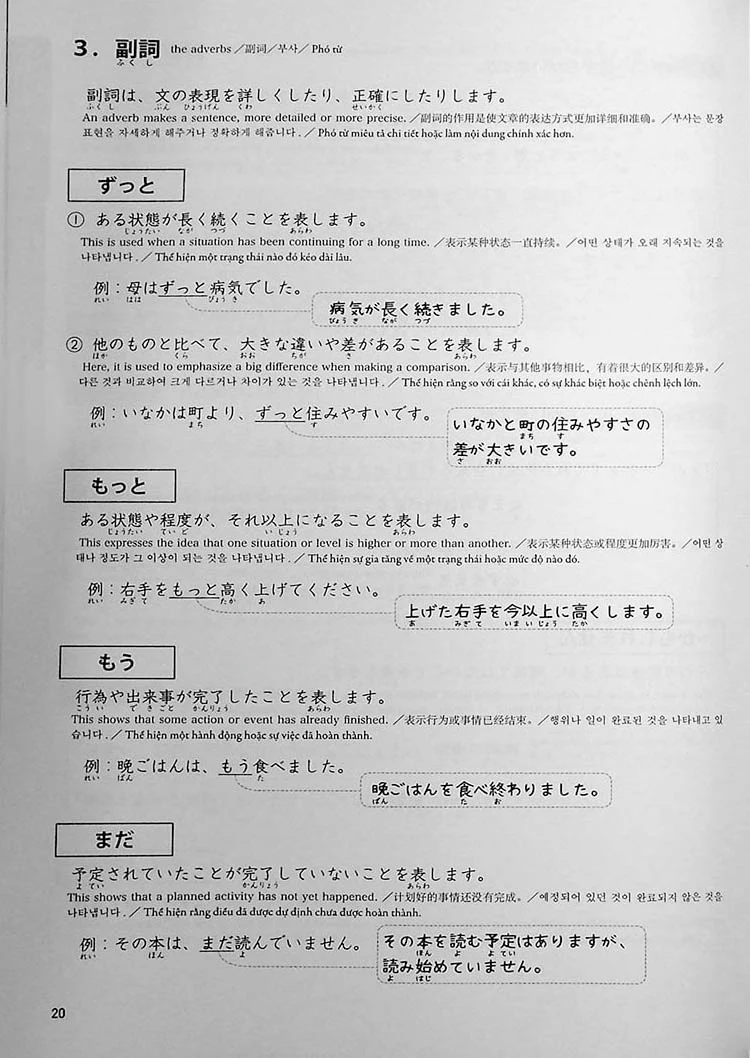 3．副詞 the adverbs／副词／부사／Phó từ
ふくし
副詞は、文の表現を詳しくしたり、正確にしたりします。
ふくし ぶん ひょうげん くわ せいかく
An adverb makes a sentence, more detailed or more precise.／副词的作用是使文章的表达方式更加详细和准确。／부사는 문장
표현을 자세하게 해주거나 정확하게 해줍니다.／Phó từ miêu tả chi tiết hoặc làm nội dung chính xác hơn.
ずっと
① ある状態が長く続くことを表します。
じょうたい なが つづ あらわ
This is used when a situation has been continuing for a long time.／表示某种状态一直持续。／어떤 상태가 오래 지속되는 것을
나타냅니다.／Thể hiện một trạng thái nào đó kéo dài lâu.
例：母はずっと病気でした。
れい はは びょうき
病気が長く続きました。
びょうき なが つづ
② 他のものと比べて、大きな違いや差があることを表します。
ほか くら おお ちが さ あらわ
Here, it is used to emphasize a big difference when making a comparison.／表示与其他事物相比，有着很大的区别和差异。／
다른 것과 비교하여 크게 다르거나 차이가 있는 것을 나타냅니다.／Thể hiện rằng so với cái khác, có sự khác biệt hoặc chênh lệch lớn.
例：いなかは町より、ずっと住みやすいです。
れい まち す
いなかと町の住みやすさの
まち す
差が大きいです。
さ おお
もっと
ある状態や程度が、それ以上になることを表します。
じょうたい ていど いじょう あらわ
This expresses the idea that one situation or level is higher or more than another.／表示某种状态或程度更加厉害。／어떤 상
태나 정도가 그 이상이 되는 것을 나타냅니다.／Thể hiện sự gia tăng về một trạng thái hoặc mức độ nào đó.
例：右手をもっと高く上げてください。
れい みぎて たか あ
上げた右手を今以上に高くします。
あ みぎて いまいじょう たか
もう
行為や出来事が完了したことを表します。
こうい できごと かんりょう あらわ
This shows that some action or event has already finished.／表示行为或事情已经结束。／행위나 일이 완료된 것을 나타내고 있
습니다.／Thể hiện một hành động hoặc sự việc đã hoàn thành.
例：晩ごはんは、もう食べました。
れい ばん た
晩ごはんを食べ終わりました。
ばん た お
まだ
予定されていたことが完了していないことを表します。
よてい かんりょう あらわ
This shows that a planned activity has not yet happened.／计划好的事情还没有完成。／예정되어 있던 것이 완료되지 않은 것을
나타냅니다.／Thể hiện rằng điều đã được dự định chưa được hoàn thành.
例：その本は、まだ読んでいません。
れい ほん よ
その本を読む予定はありますが、
ほん よ よてい
読み始めていません。
よ はじ
20